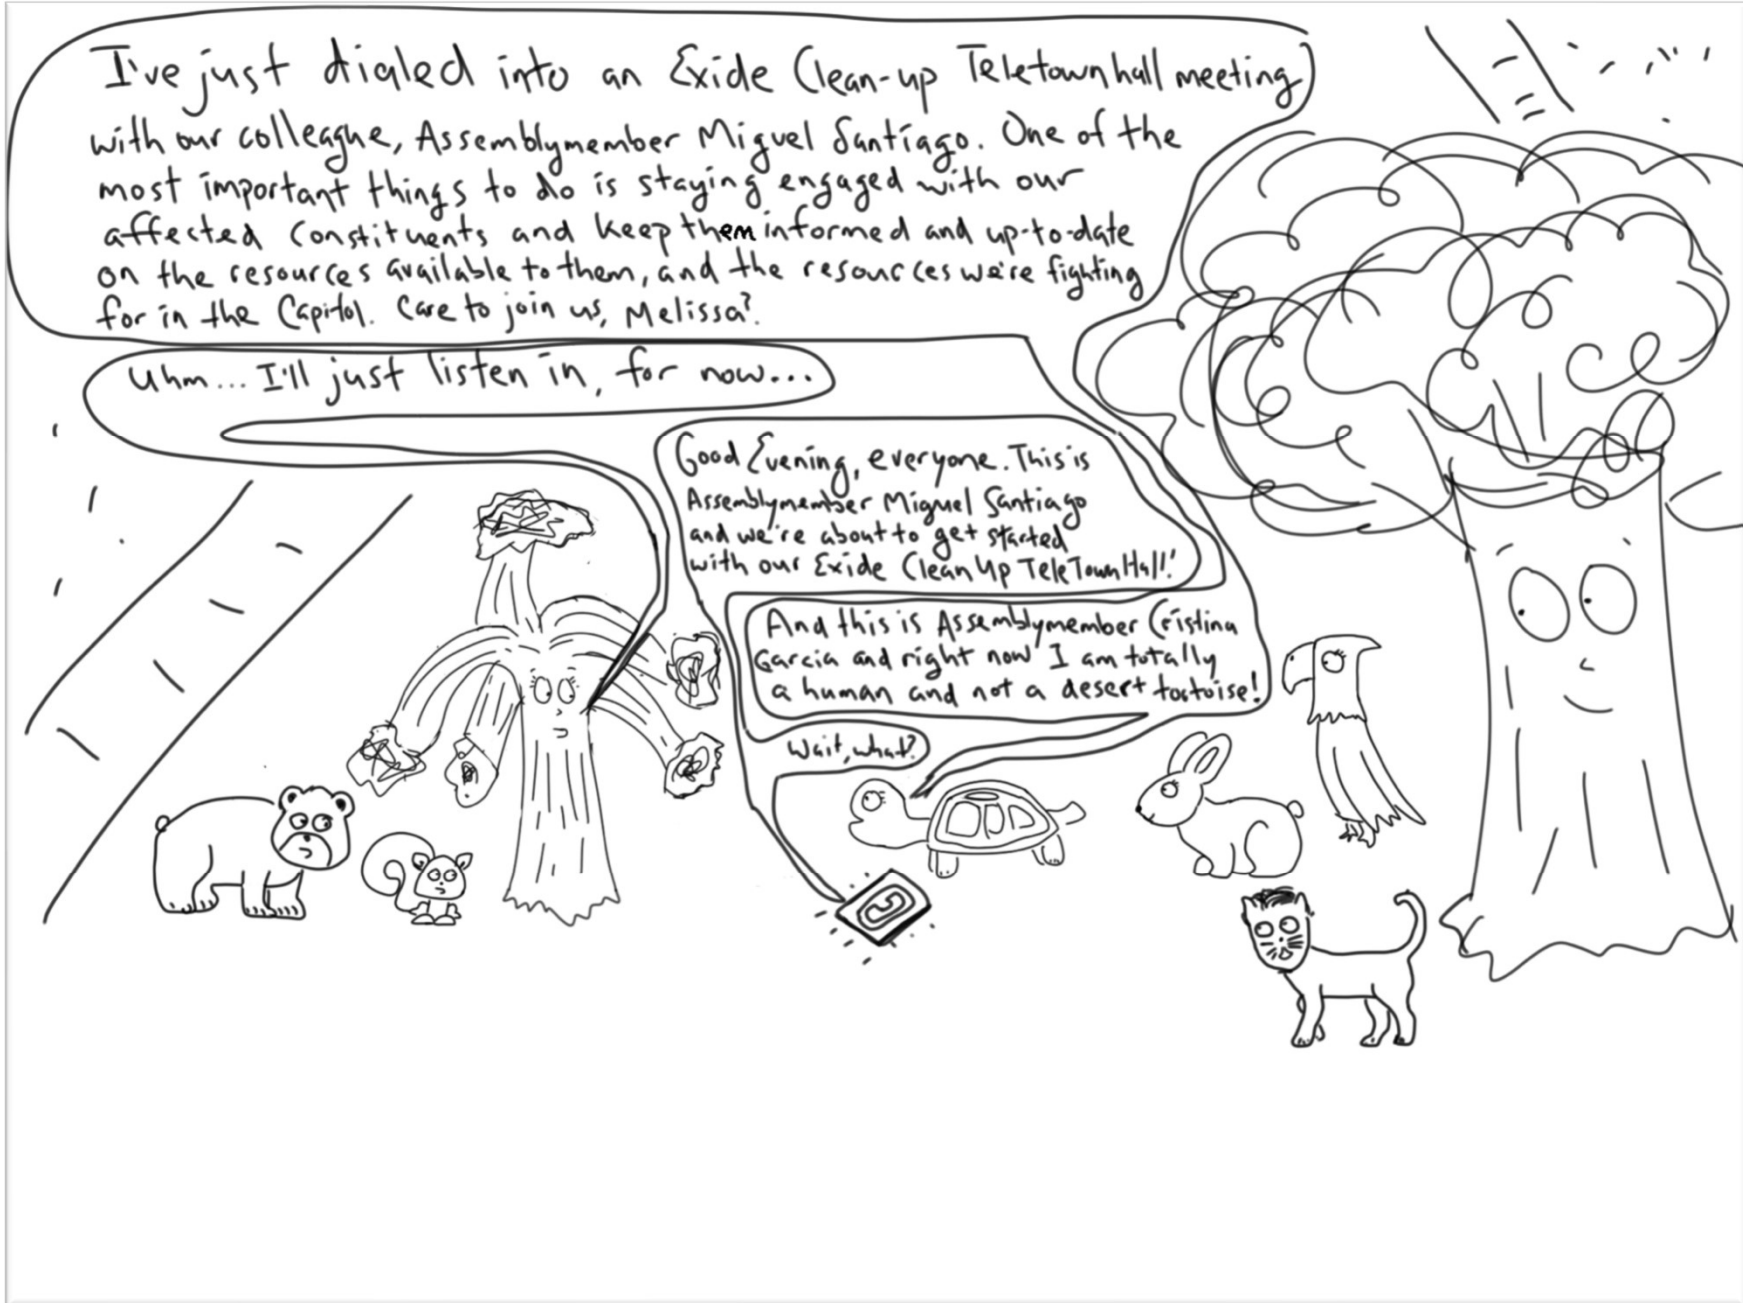 I've just dialed into an Exide Clean-up Teletownhall meeting
with our colleague, Assemblymember Miguel Santiago. One of the
most important things to do is staying engaged with our
affected constituents and keep them informed and up-to-date
on the resources available to them, and the resources we're fighting
for in the Capitol. Care to join us, Melissa?
Uhm... I'll just listen in, for now...
Good Evening, everyone. This is
Assemblymember Miguel Santiago
and we're about to get started
with our Exide Clean Up TeleTownHall!
And this is Assemblymember Cristina
Garcia and right now I am totally
a human and not a desert tortoise!
Wait, what?